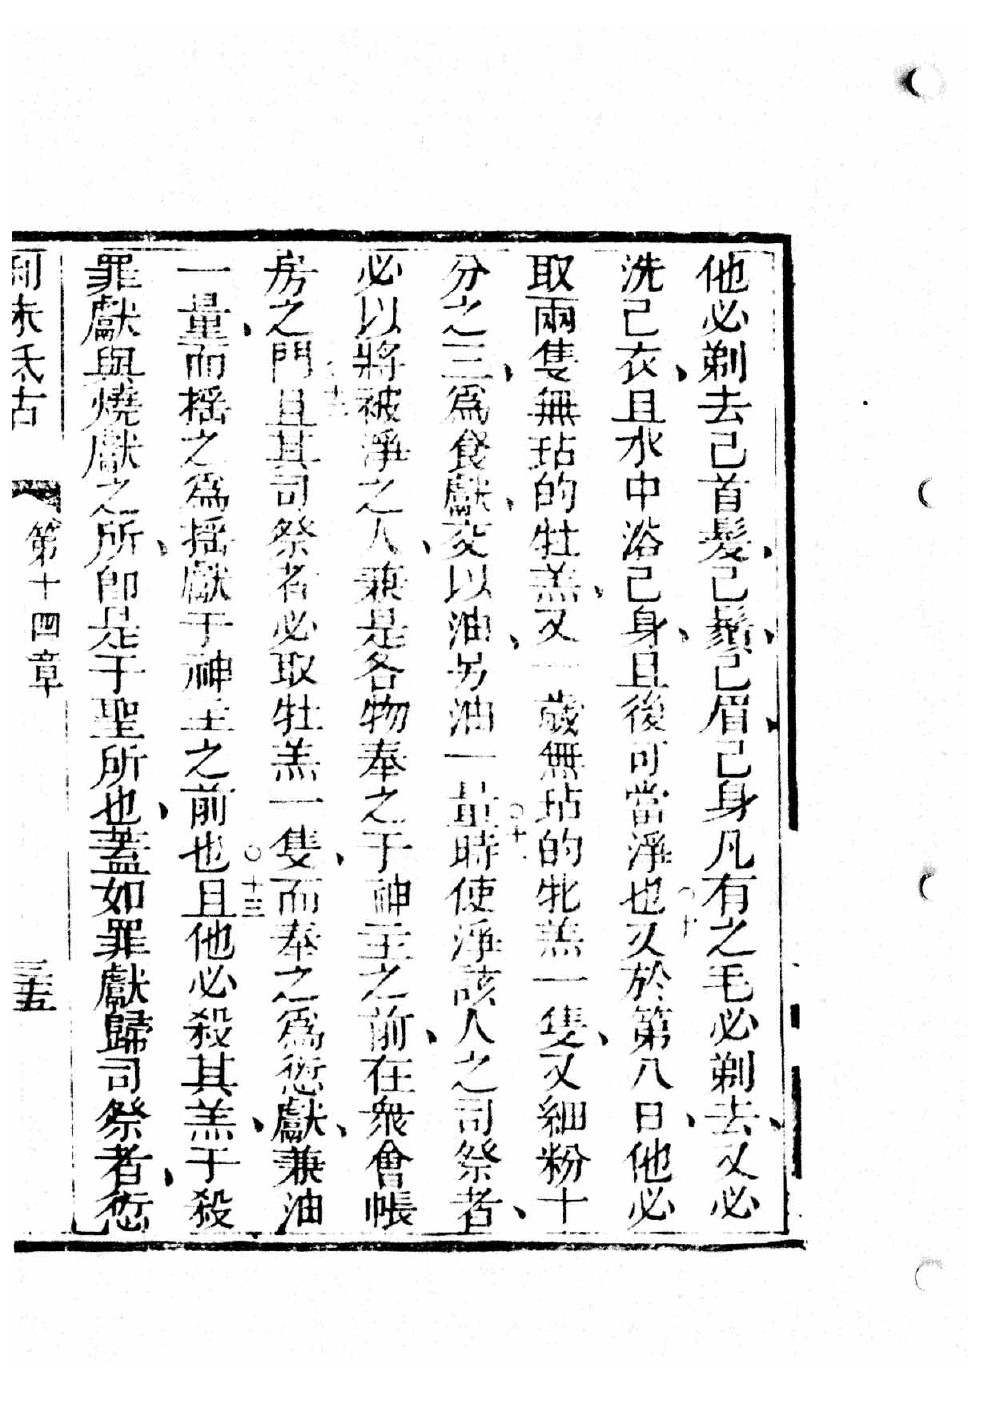 他必剃去己首髮、己鬚、己眉、己身凡有之毛必剃去、又必
洗己衣、且水中浴己身、且後可當淨也○十又於第八日、他必
取兩隻無玷的牡羔、又一歲無玷的牝羔一隻、又細粉十
分之三、為食獻、交以油、另油一量○十一時使淨該人之司祭者、
必以將被淨之人、兼是各物奉之于神主之前、在衆會帳
房之門○十二且其司祭者必取牡羔一隻、而奉之為愆獻、兼油
一量、而搖之為搖獻于神主之前也○十三且他必殺其羔、于殺
罪獻與燒獻之所、即是于聖所也、蓋如罪獻歸司祭者、愆
利未氏古
第十四章
三五